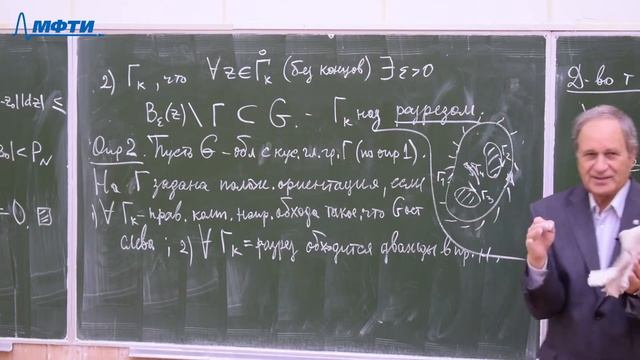 МФТИ
2) Γк, что ∀z∈Γ̊к (без концов) ∃ε>0
Bε(z)\Γ ⊂ G. - Γк наз. разрезом.
Опр2. Пусть G - обл. с кус. гл. гр. Γ (по опр 1).
На Γ задана полож. ориентация, если
1) ∀ Γк = прав. комп. напр. обхода такое, что G ост
слева ; 2) ∀ Γк = разрез обходится дважды в пр. н.
-z₀||dz| ≤
| < PN
=0.
Γ1
Γ2
Γ3
Γ4
Д-во т